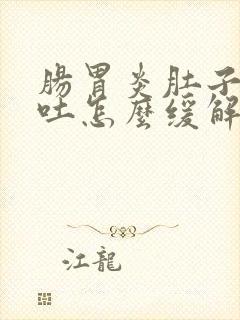 腸胃炎肚子
吐怎麼緩解
江龍